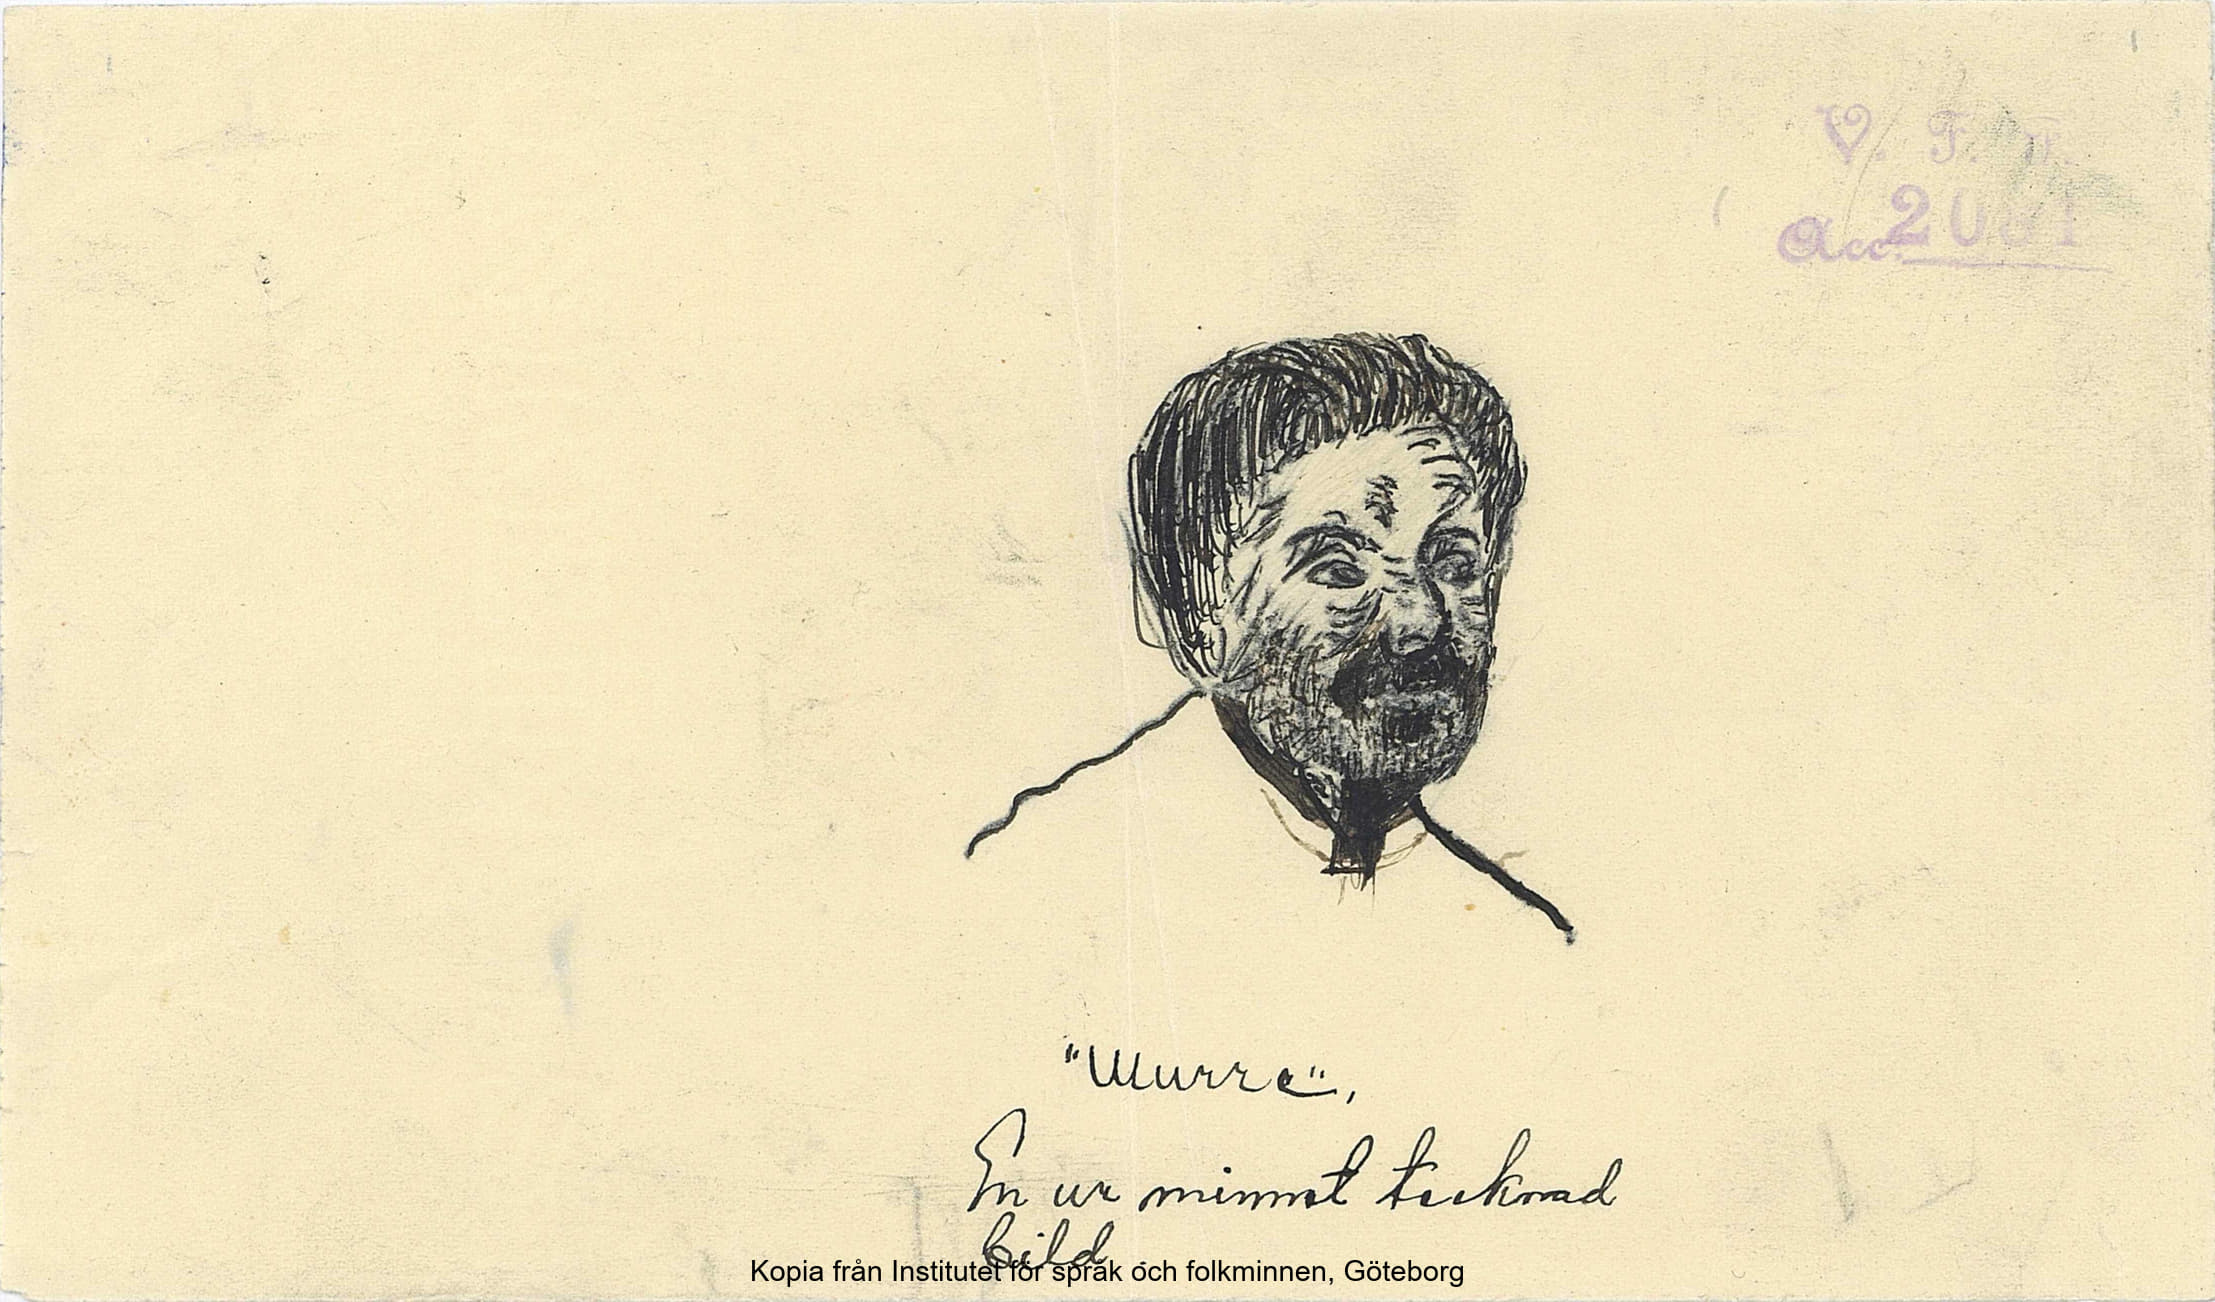 V. F. F.
Acc. 2031
"Murre",
En ur minnet tecknad
bild.
Kopia från Institutet för språk och folkminnen, Göteborg